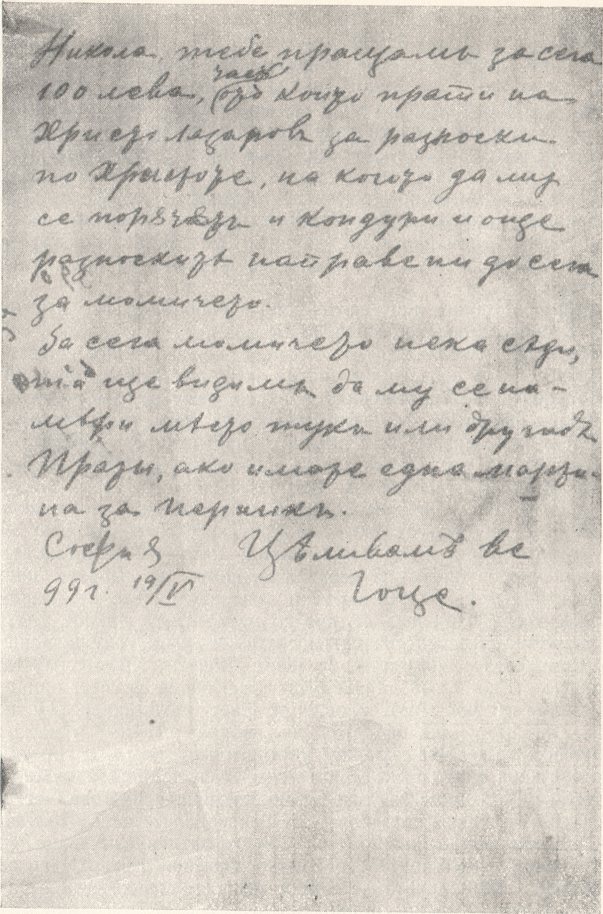 Никола, тебе пращамъ за сега
100 лева, часть отъ които прати на
Христо Лазаровъ за разноски
по Христоте, на когото да му
се порѫчатъ и кондури и още
разноскитѣ направени до сега
за момичето.
За сега момичето нека сѣди,
па ще видимъ да му се на-
мѣри мѣсто тука или другадѣ
Прати, ако може една
на за
София Цѣливамъ ве
99 г. 19/V Гоце.